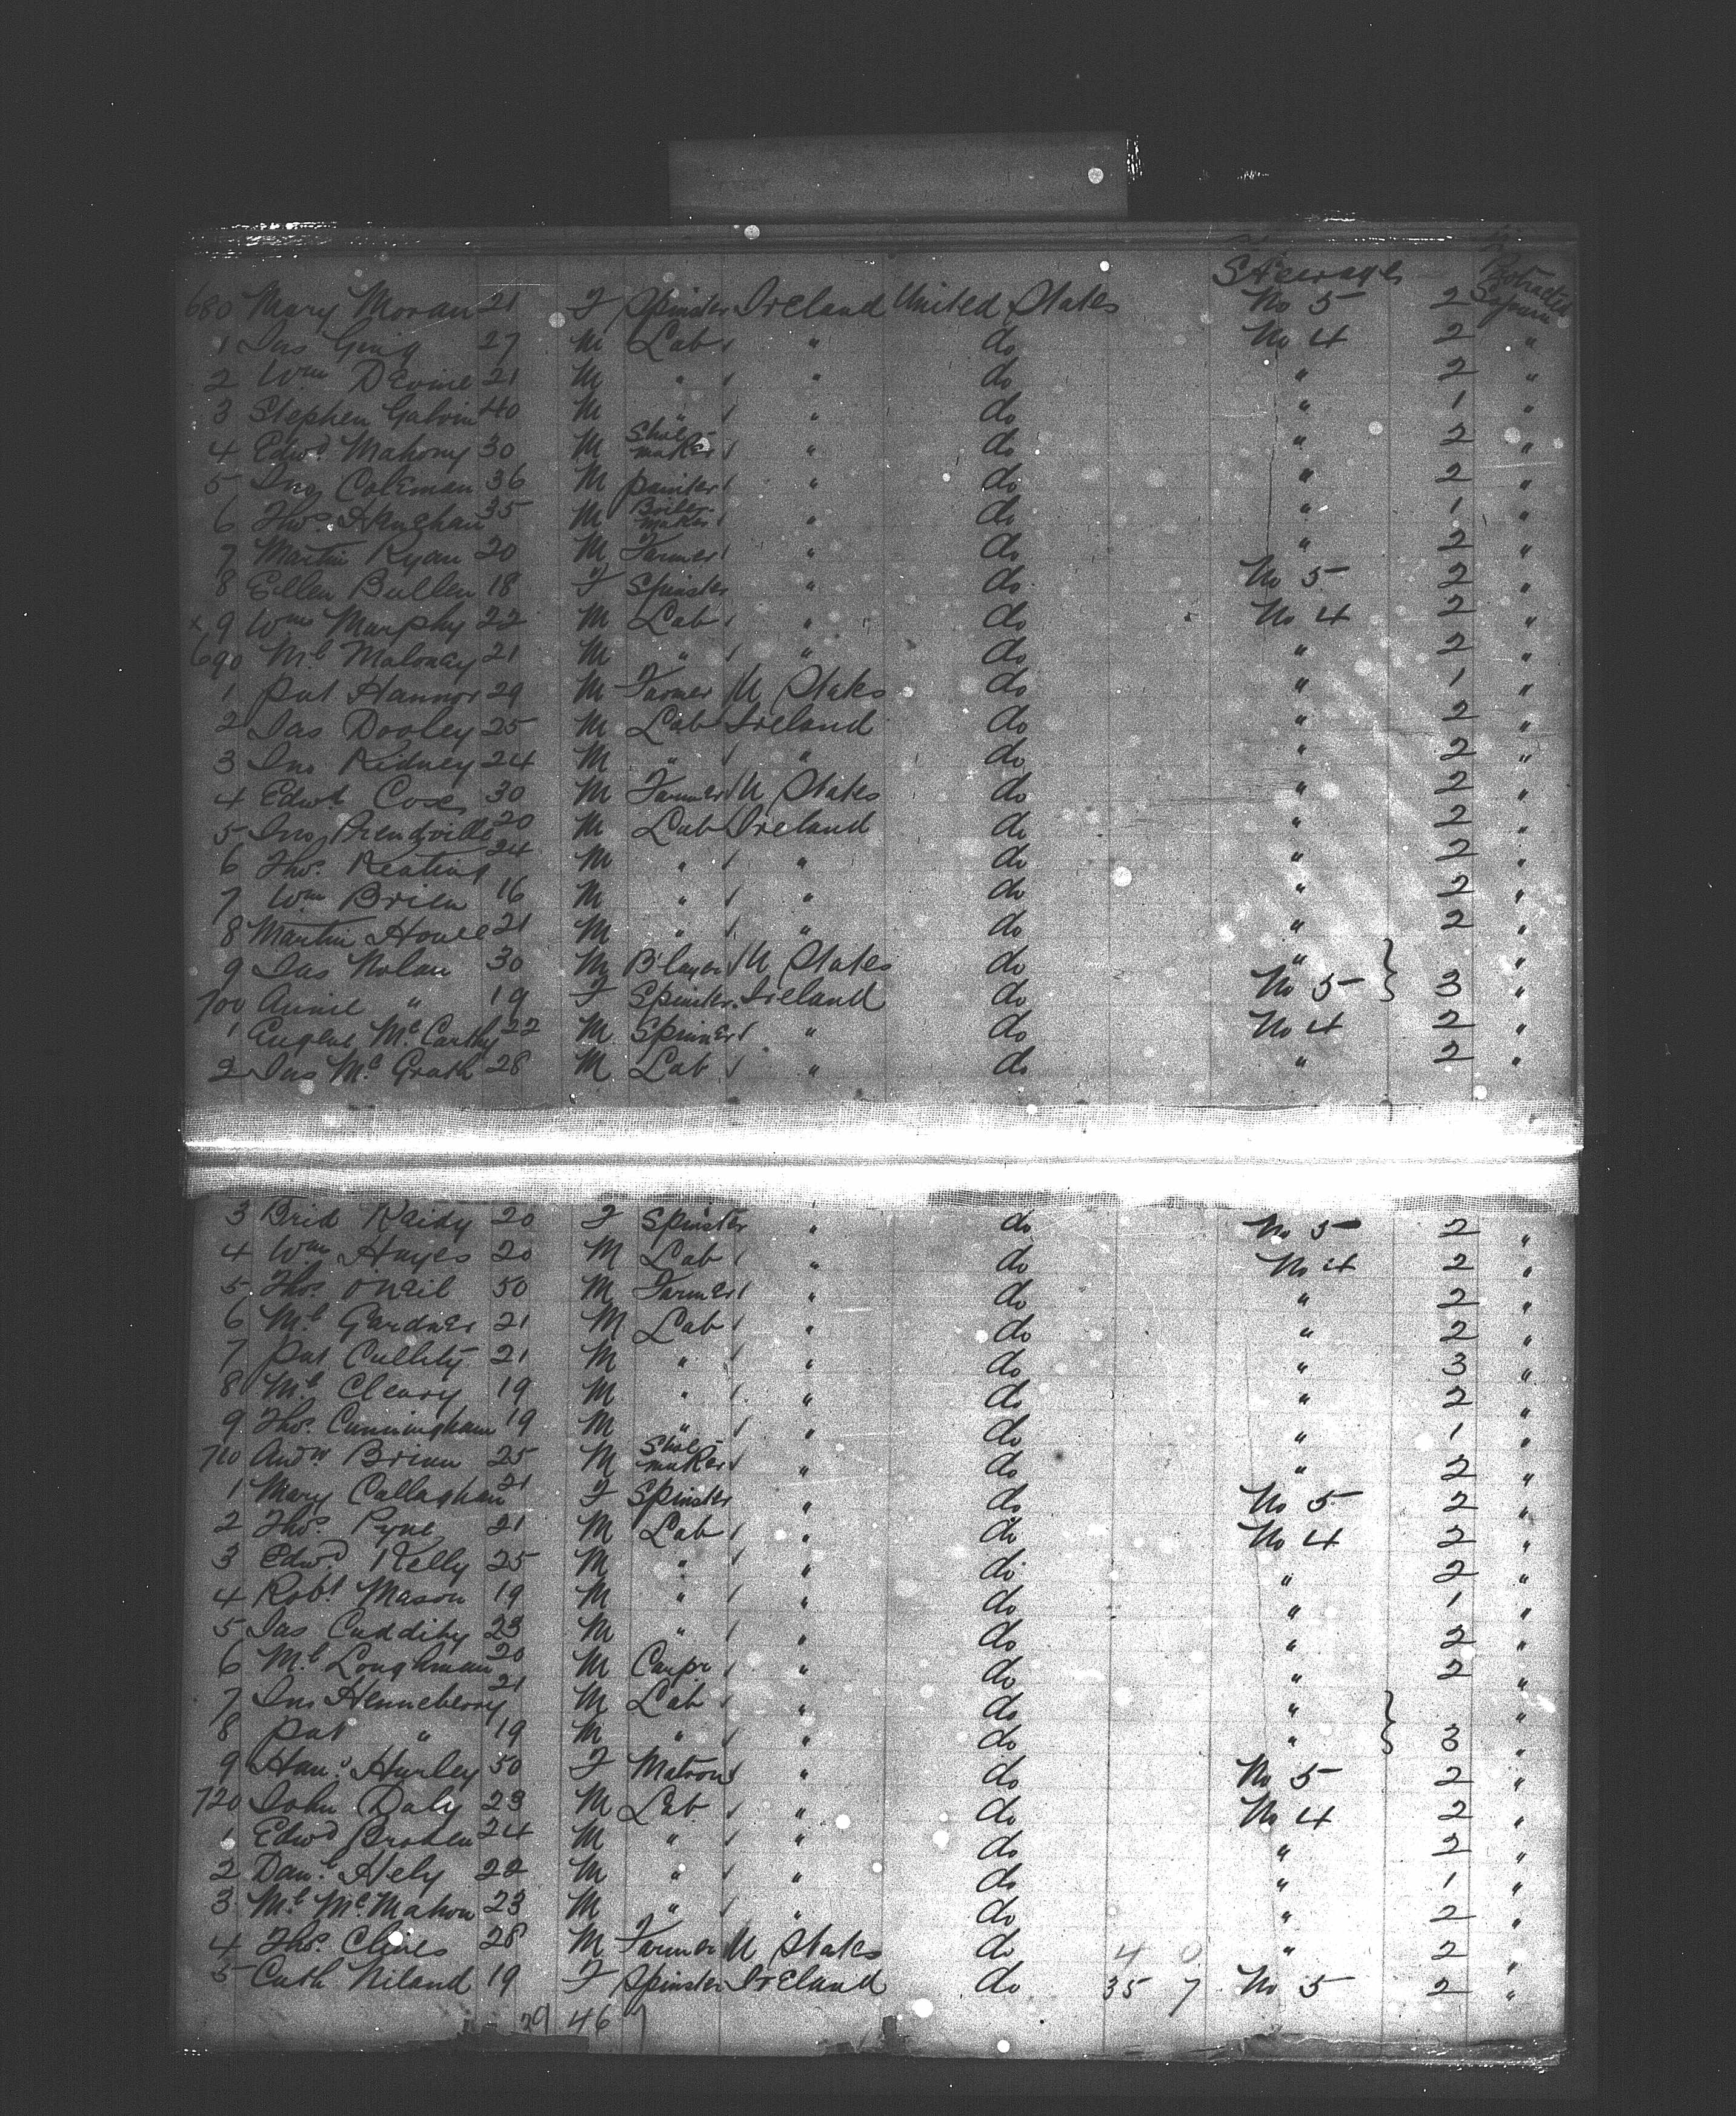 Steerage
680 Mary Moran 21 F Spinster Ireland United States No 5 2 Protracted Sojourn
1 Jas Ging 27 M Lab " do No 4 2 "
2 Wm Devine 21 M " " do " 2 "
3 Stephen Galvin 40 M " " do " 1 "
4 Edwd Mahony 30 M Shoe-maker " do " 2 "
5 Jno Coleman 36 M painter " do " 2 "
6 Thos Hanghan 35 M Boiler-maker " do " 1 "
7 Martin Ryan 20 M Farmer " do " 2 "
8 Ellen Bullen 18 F Spinster " do No 5 2 "
x 9 Wm Murphy 22 M Lab " do No 4 2 "
690 Ml Maloney 21 M " " do " 2 "
1 Pat Hannor 29 M Farmer U States do " 1 "
2 Jas Dooley 25 M Lab Ireland do " 2 "
3 Jno Kidney 24 M " " do " 2 "
4 Edwd Cox 30 M Farmer U States do " 2 "
5 Jno Prendville 20 M Lab Ireland do " 2 "
6 Thos Keating 24 M " " do " 2 "
7 Wm Brien 16 M " " do " 2 "
8 Martin Howe 21 M " " do " 2 "
9 Jas Nolan 30 M B'layer U States do " "
700 Annie " 19 F Spinster Ireland do No 5 3 "
1 Eugene McCarthy 22 M Spinner " do No 4 2 "
2 Jas McGrath 28 M Lab " do " 2 "
3 Brid Reidy 20 F Spinster " do No 5 2 "
4 Wm Hayes 20 M Lab " do No 4 2 "
5 Thos ONeil 50 M Farmer " do " 2 "
6 Ml Gardner 21 M Lab " do " 2 "
7 Pat Cullity 21 M " " do " 3 "
8 Ml Cleary 19 M " " do " 2 "
9 Thos Cunningham 19 M " " do " 1 "
710 Andw Brien 25 M Shoe-maker " do " 2 "
1 Mary Callaghan 21 F Spinster " do No 5 2 "
2 Thos Pyne 21 M Lab " do No 4 2 "
3 Edwd Kelly 25 M " " do " 2 "
4 Robt Mason 19 M " " do " 1 "
5 Jas Cuddihy 23 M " " do " 2 "
6 Ml Loughman 20 M Carpr " do " 2 "
7 Jno Henneberry 21 M Lab " do " "
8 Pat " 19 M " " do " 3 "
9 Hana Hurley 50 F Matron " do No 5 2 "
720 John Daly 23 M Lab " do No 4 2 "
1 Edwd 24 M " " do " 2 "
2 Danl Hely 22 M " " do " 1 "
3 Ml McMahon 23 M " " do " 2 "
4 Thos Clines 28 M Farmer U States do 4 0 " 2 "
5 Cath Niland 19 F Spinster Ireland do 35 7 No 5 2 "
29 46